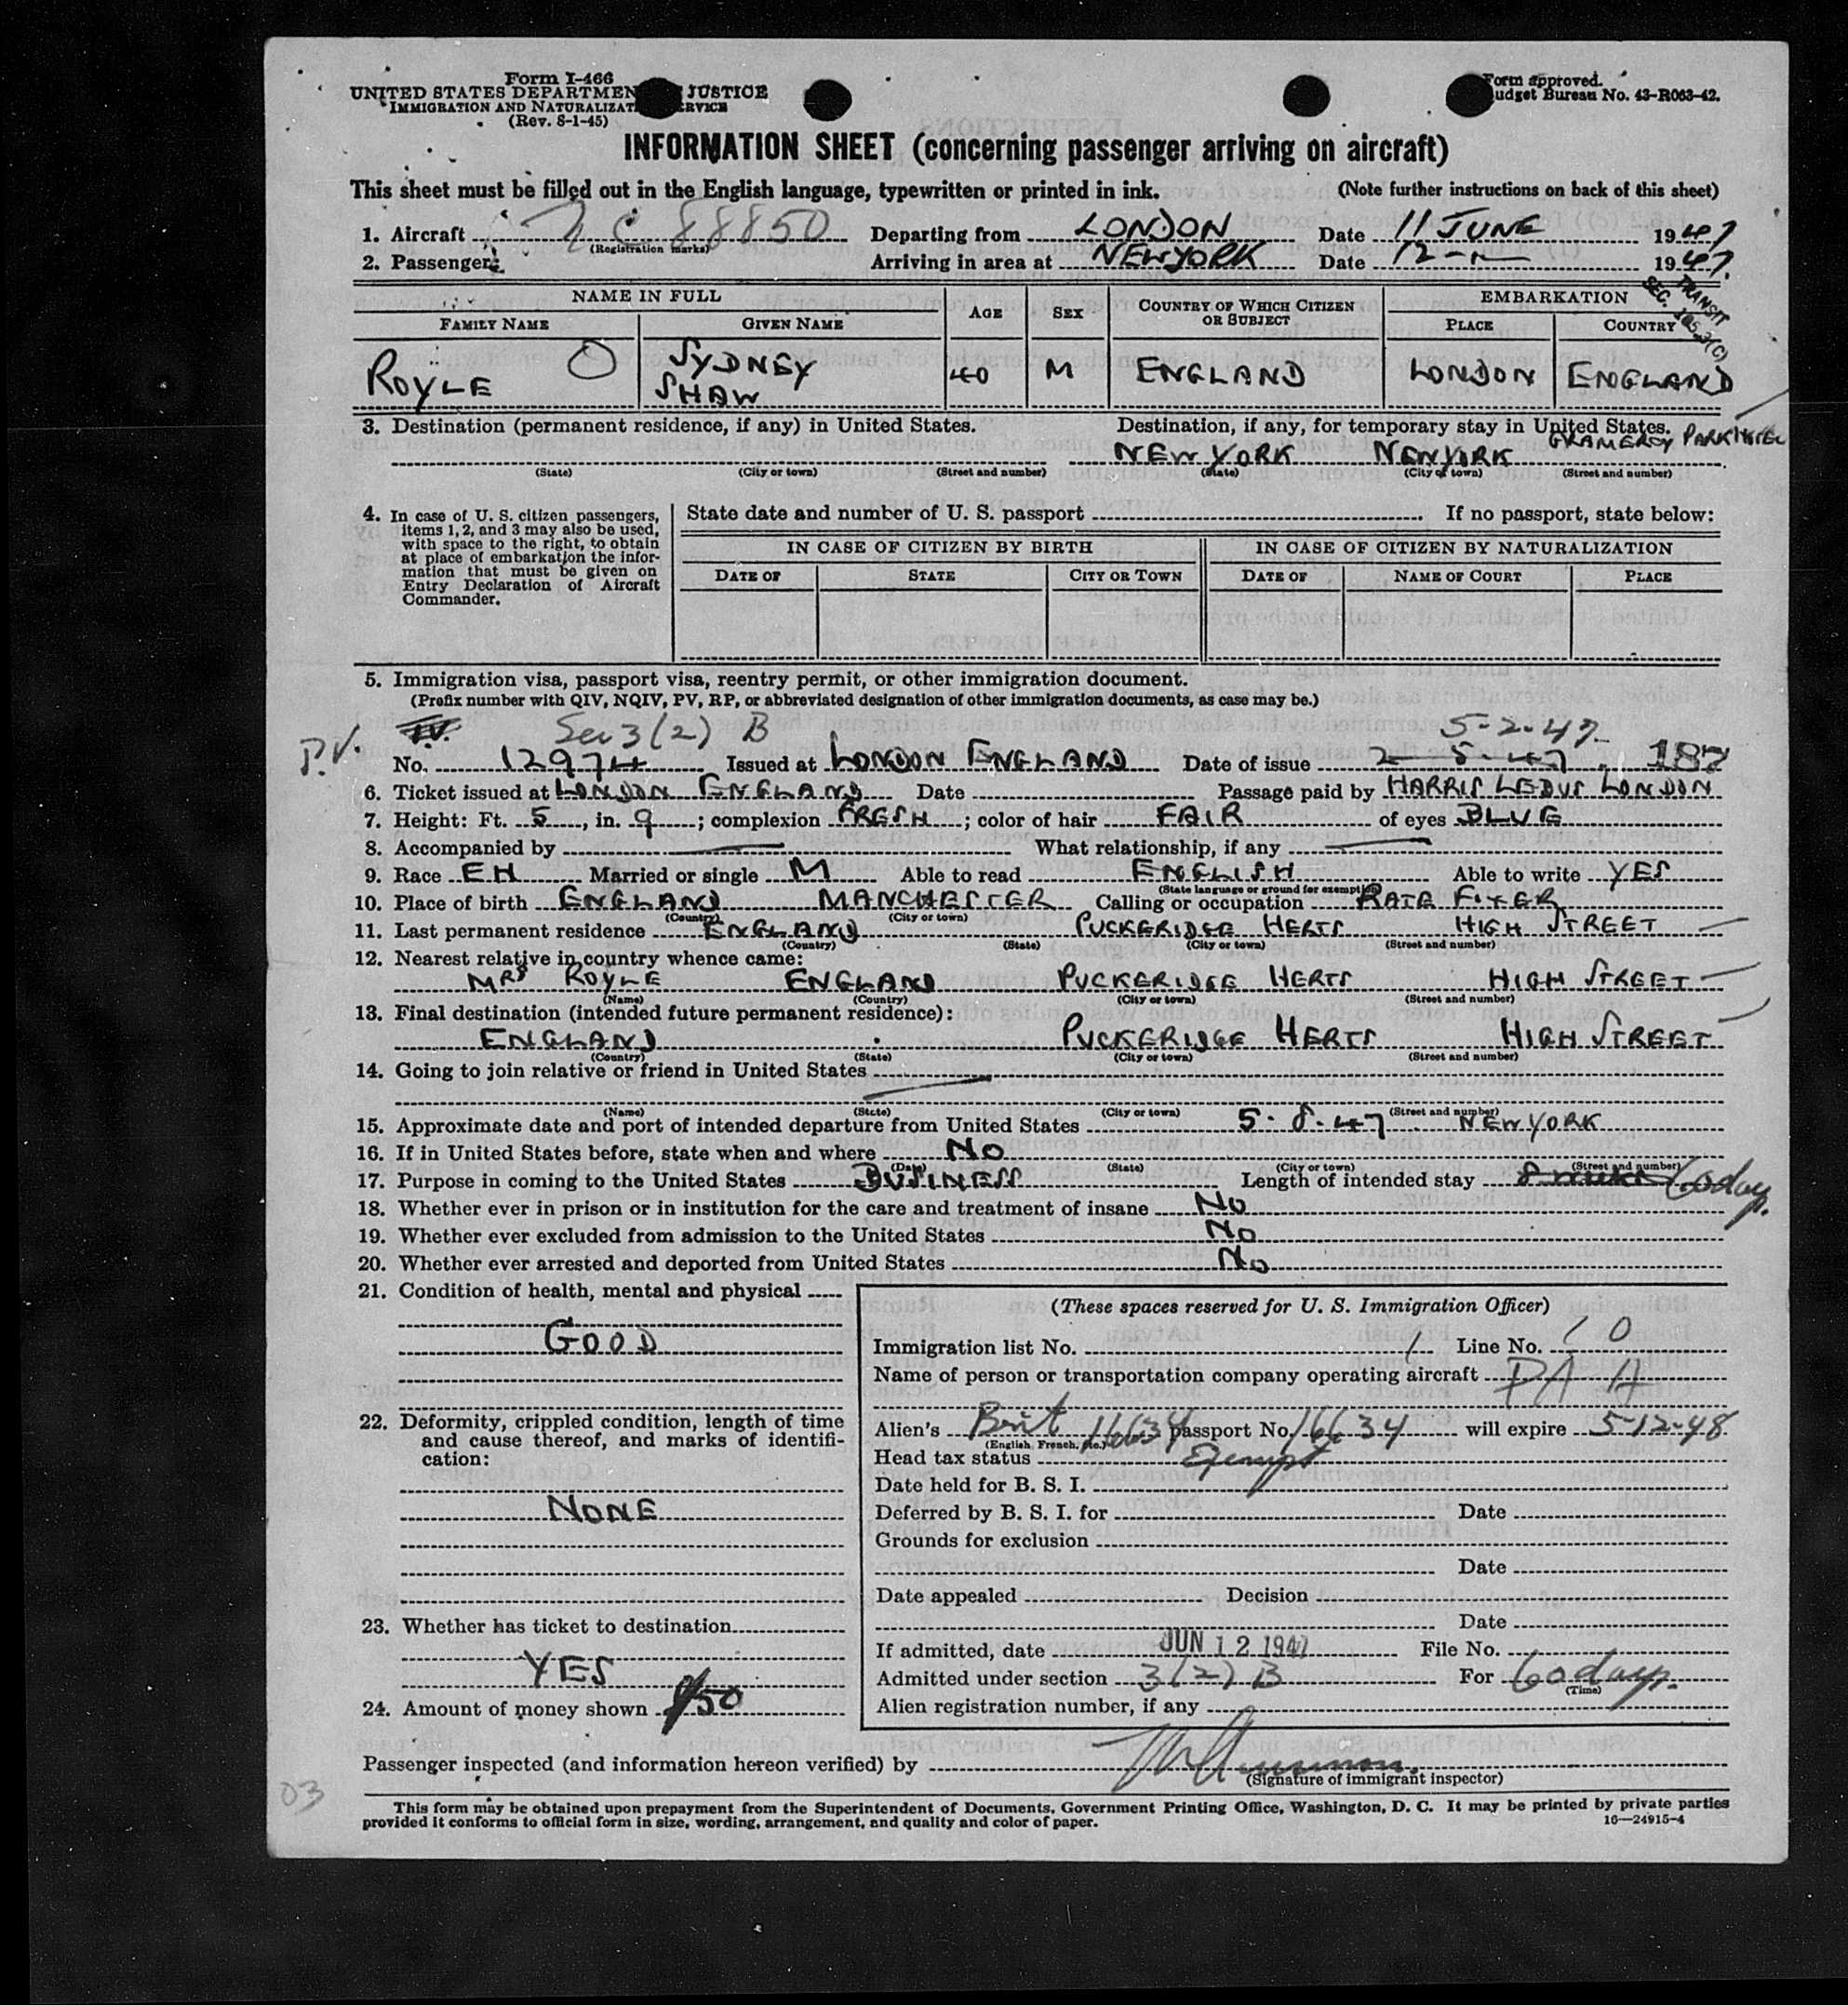 Form I-466
UNITED STATES DEPARTMEN JUSTICE
IMMIGRATION AND NATURALIZAT RVICE
(Rev. 8-1-45)
Form approved.
udget Bureau No. 43-R063-42.
INFORMATION SHEET (concerning passenger arriving on aircraft)
This sheet must be filled out in the English language, typewritten or printed in ink. (Note further instructions on back of this sheet)
1. Aircraft NC 88850 Departing from LONDON Date 11 JUNE 1947
(Registration marks)
2. Passenger: Arriving in area at NEW YORK Date 12 1947.
TRANSIT
SEC. 105.3(C)
NAME IN FULL AGE SEX COUNTRY OF WHICH CITIZEN OR SUBJECT EMBARKATION
FAMILY NAME GIVEN NAME PLACE COUNTRY
ROYLE SYDNEY SHAW 40 M ENGLAND LONDON ENGLAND
3. Destination (permanent residence, if any) in United States. Destination, if any, for temporary stay in United States.
NEW YORK NEW YORK GRAMERCY PARK HOTEL
(State) (City or town) (Street and number) (State) (City or town) (Street and number)
4. In case of U. S. citizen passengers, items 1, 2, and 3 may also be used, with space to the right, to obtain at place of embarkation the information that must be given on Entry Declaration of Aircraft Commander.
State date and number of U. S. passport If no passport, state below:
IN CASE OF CITIZEN BY BIRTH IN CASE OF CITIZEN BY NATURALIZATION
DATE OF STATE CITY OR TOWN DATE OF NAME OF COURT PLACE
5. Immigration visa, passport visa, reentry permit, or other immigration document.
(Prefix number with QIV, NQIV, PV, RP, or abbreviated designation of other immigration documents, as case may be.)
P.V. Sec 3(2) B 5-2-47
No. 12974 Issued at LONDON ENGLAND Date of issue 2-5-47 187
6. Ticket issued at LONDON ENGLAND Date Passage paid by HARRIS LEDUS LONDON
7. Height: Ft. 5, in. 9; complexion FRESH; color of hair FAIR of eyes BLUE
8. Accompanied by What relationship, if any
9. Race EH Married or single M Able to read ENGLISH Able to write YES
(State language or ground for exemption)
10. Place of birth ENGLAND MANCHESTER Calling or occupation RATE FIXER
(Country) (City or town)
11. Last permanent residence ENGLAND PUCKERIDGE HERTS HIGH STREET
(Country) (State) (City or town) (Street and number)
12. Nearest relative in country whence came:
MRS ROYLE ENGLAND PUCKERIDGE HERTS HIGH STREET
(Name) (Country) (City or town) (Street and number)
13. Final destination (intended future permanent residence):
ENGLAND PUCKERIDGE HERTS HIGH STREET
(Country) (State) (City or town) (Street and number)
14. Going to join relative or friend in United States
(Name) (State) (City or town) (Street and number)
15. Approximate date and port of intended departure from United States 5-8-47 NEW YORK
16. If in United States before, state when and where NO
(Date) (State) (City or town) (Street and number)
17. Purpose in coming to the United States BUSINESS Length of intended stay 60 days.
18. Whether ever in prison or in institution for the care and treatment of insane NO
19. Whether ever excluded from admission to the United States NO
20. Whether ever arrested and deported from United States NO
21. Condition of health, mental and physical
GOOD
22. Deformity, crippled condition, length of time and cause thereof, and marks of identification:
NONE
23. Whether has ticket to destination
YES
24. Amount of money shown $50
(These spaces reserved for U. S. Immigration Officer)
Immigration list No. 1 Line No. 10
Name of person or transportation company operating aircraft PAA
Alien's Brit 16634 passport No. 16634 will expire 5-12-48
(English, French, etc.)
Head tax status Exempt
Date held for B. S. I.
Deferred by B. S. I. for Date
Grounds for exclusion
Date
Date appealed Decision
Date
If admitted, date JUN 12 1947 File No.
Admitted under section 3(2) B For 60 days.
(Time)
Alien registration number, if any
Passenger inspected (and information hereon verified) by
(Signature of immigrant inspector)
03
This form may be obtained upon prepayment from the Superintendent of Documents, Government Printing Office, Washington, D. C. It may be printed by private parties
provided it conforms to official form in size, wording, arrangement, and quality and color of paper. 16—24915-4